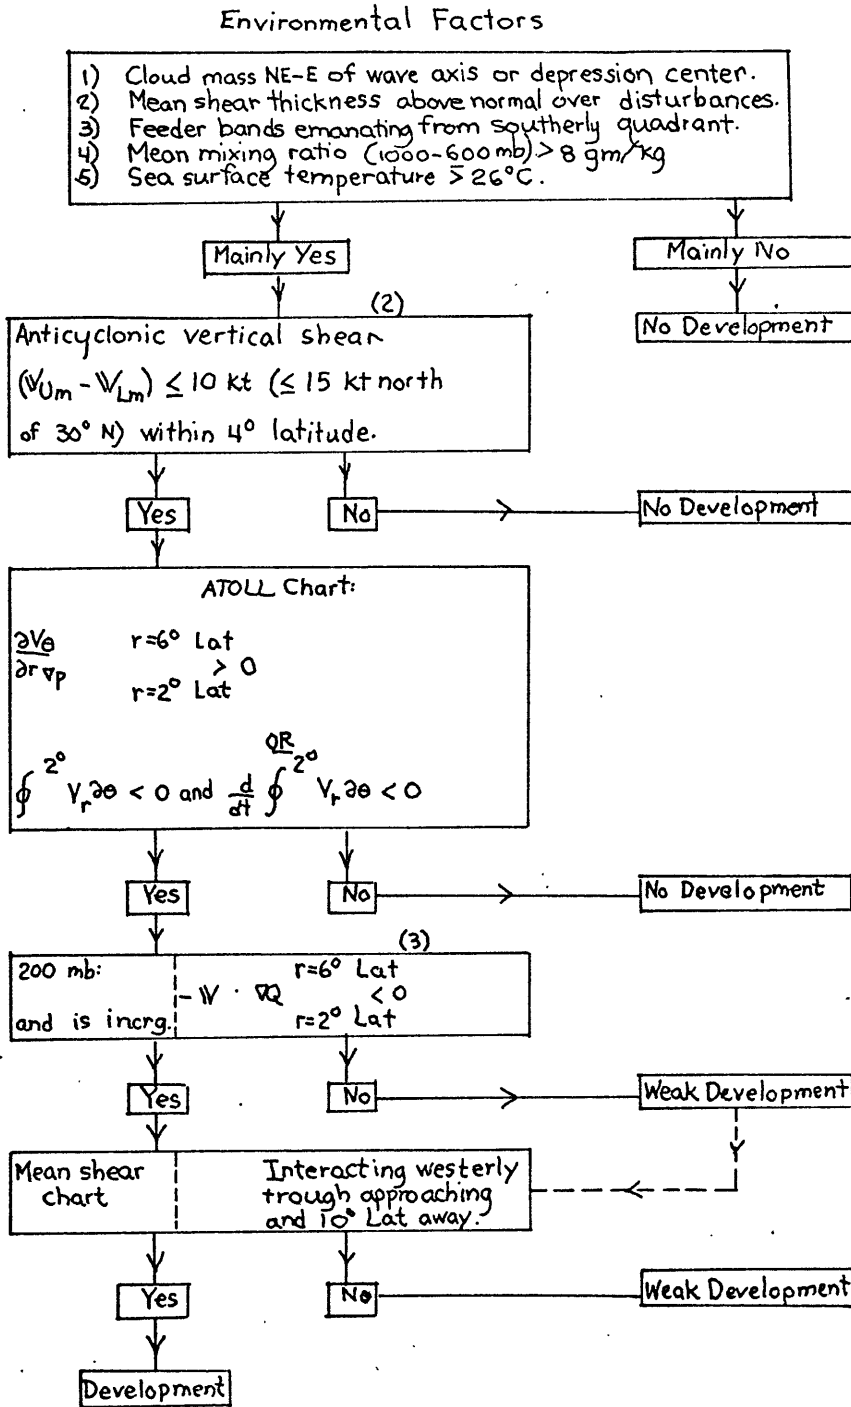 Environmental Factors
1) Cloud mass NE-E of wave axis or depression center.
2) Mean shear thickness above normal over disturbances.
3) Feeder bands emanating from southerly quadrant.
4) Mean mixing ratio (1000-600 mb) > 8 gm/kg
5) Sea surface temperature ≥ 26°C.
Mainly Yes
Mainly No
No Development
(2)
Anticyclonic vertical shear
(𝕍Um - 𝕍Lm) ≤ 10 kt (≤ 15 kt north
of 30° N) within 4° latitude.
Yes
No
No Development
ATOLL Chart:
∂Vθ r=6° Lat
∂r ∇p > 0
r=2° Lat
OR
∮ 2° Vr ∂θ < 0 and d/dt ∮ 2° Vr ∂θ < 0
Yes
No
No Development
(3)
200 mb: r=6° Lat
- 𝕍 · ∇Q < 0
and is incrg. r=2° Lat
Yes
No
Weak Development
Mean shear
chart
Interacting westerly
trough approaching
and 10° Lat away.
Yes
No
Weak Development
Development